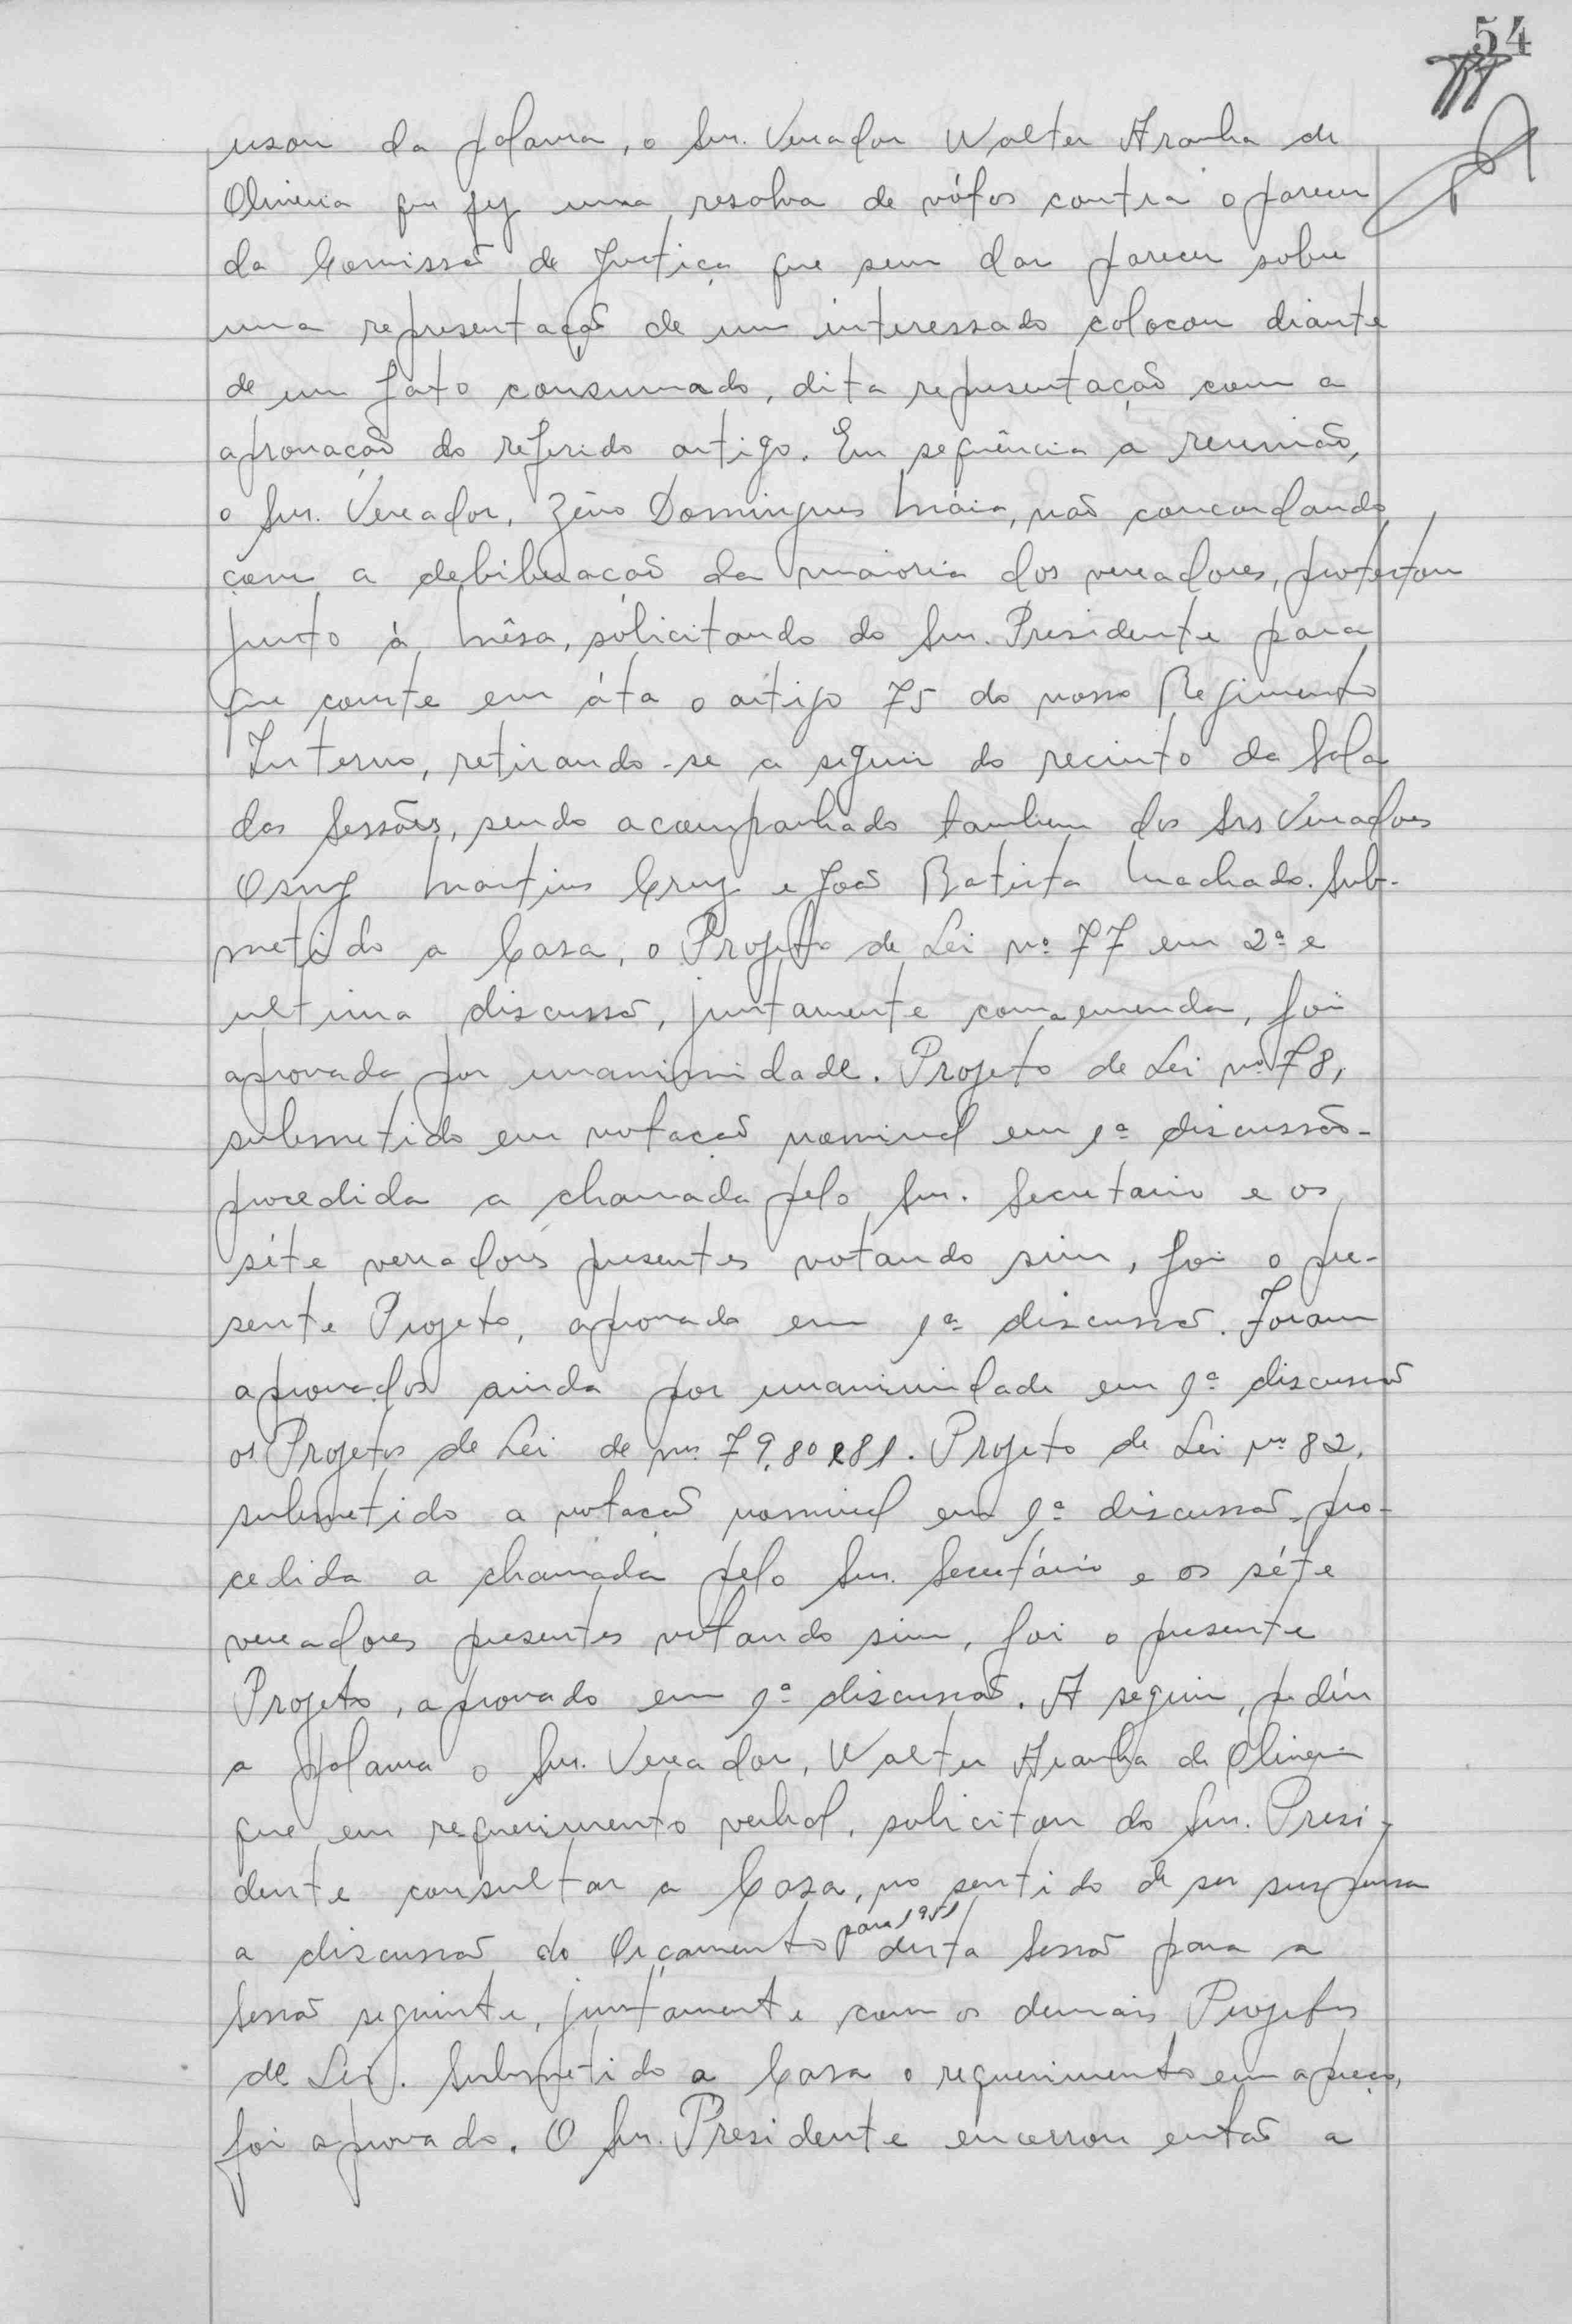 54
usou da palavra, o Snr. Vereador Walter Aranha de
Oliveira que fez uma resalva de vótos contra o parecer
da Comissão de Justiça que sem dar parecer sobre
uma representação de um interessado colocou diante
de um fato consumado, dita representação com a
aprovação do referido artigo. Em sequência a reunião,
o Snr. Vereador, Zeno Domingues Maia, não concordando
com a debiberação da maioria dos vereadores, protestou
junto à Mêsa, solicitando do Snr. Presidente para
que conste em áta o artigo 75 do nosso Regimento
Interno, retirando-se a seguir do recinto da Sala
das Sessões, sendo acompanhado tambem dos Srs Vereadores
Osny Martins Cruz e João Batista Machado. Sub-
metido a Casa, o Projeto de Lei nº 77 em 2ª e
ultima discussão, juntamente com a emenda, foi
aprovada por unanimidade. Projeto de Lei nº 78,
submetido em votação nominal em 1ª discussão-
procedida a chamada pelo Snr. Secretario e os
séte vereadores presentes votando sim, foi o pre-
sente Projeto, aprovado em 1ª discussão. Foram
aprovados ainda por unanimidade em 1ª discussão
os Projetos de Lei de nos 79, 80 e 81. Projeto de Lei nº 82,
submetido a votação nominal em 1ª discussão, pro-
cedida a chamada pelo Snr. Secretário e os séte
vereadores presentes votando sim, foi o presente
Projeto, aprovado em 1ª discussão. A seguir, pediu
a palavra o Snr. Vereador, Walter Aranha de Oliveira
que em requerimento verbal, solicitou do Snr. Presi-
dente consultar a Casa, no sentido de ser suspensa
a discussão do Orçamento para 1951 desta Sessão para a
Sessão seguinte, juntamente com os demais Projetos
de Lei. Submetido a Casa o requerimento em apreço,
foi aprovado. O Snr. Presidente encerrou então a